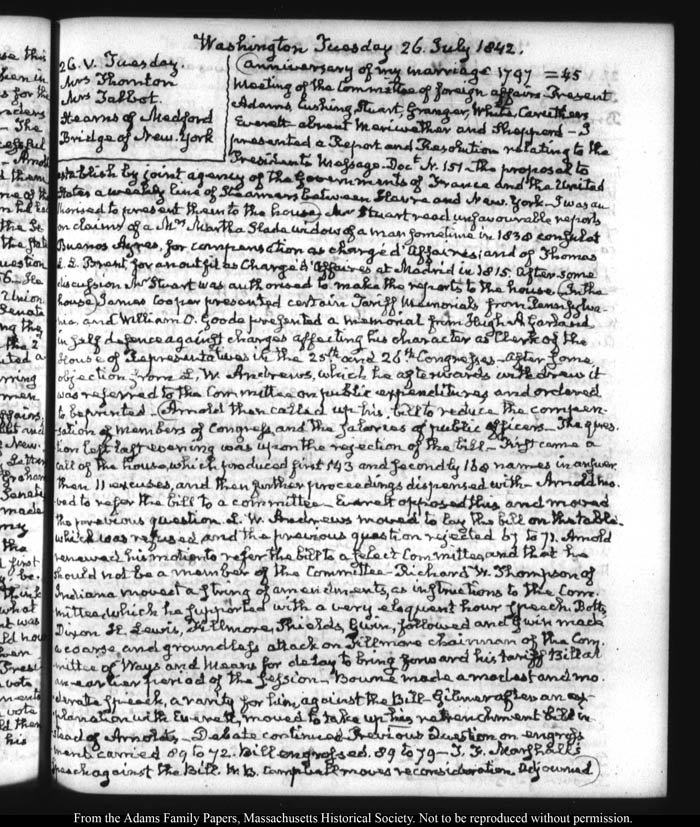 Washington Tuesday 26. July 1842.
26. V. Tuesday.
Mrs Thornton
Mrs Talbot.
Stearns of Medford
Bridge of New. York
(anniversary of my marriage 1797 = 45
Meeting of the Committee of foreign affairs Present
Adams, Cushing, Stuart, Granger, White, Caruthers
Everett absent Meriwether and Shepperd - I
presented a Report and Resolution relating to the
Presidents Message. Doct. N. 151 - the proposal to
establish by joint agency of the Governments of France and the United
States a weekly line of Steamers between Havre and New. York - I was au
thorised to present them to the house) Mr Stuart read unfavourable reports
on claims of a Mrs Martha Slade widow of a man sometime in 1838 consul at
Buenos Ayres, for compensation as chargé d'Affaires; and of Thomas
L. L. Brent for an outfit as Chargé d'Affaires at Madrid in 1815. after some
discussion Mr Stuart was authorised to make the reports to the house. In the
house, James Cooper presented certain Tariff Memorials from Pennsylva-
nia. and William O. Goode presented a memorial from Hugh A Garland
in self defence against charges affecting his character as Clerk of the
House of Representatives in the 25th and 26th Congresses - after some
objection from L. W. Andrews, which he afterwards withdrew it
was referred to the Committee on public expenditures and ordered
to be printed. (Arnold then called up his bill to reduce the compen-
sation of members of Congress and the Salaries of public officers - The ques
tion left last evening was upon the rejection of the bill - First came a
call of the house, which produced first 143 and secondly 168 names in answer
then 11 excuses, and then further proceedings dispensed with - Arnold mo.
ved to refer the bill to a committee - Everett opposed this and moved
the previous question. L. W. Andrews moved to lay the bill on the table.
which was refused and the previous question rejected 67 to 71. Arnold
renewed his motion to refer the bill to a select Committee, and that he
should not be a member of the Committee - Richard W. Thompson of
Indiana moved a string of amendments, as instructions to the Com.
mittee, which he supported with a very eloquent hour speech. Botts,
Dixon H. Lewis, Fillmore, Shields, Gwin, followed and Gwin made
a coarse and groundless attack on Fillmore chairman of the Com.
mittee of Ways and Means for delay to bring forward his tariff Bill at
an earlier period of the session. Bowne made a modest and mo.
derate speech, a rarity for him, against the Bill - Gilmer after an ex-
planation with Everett, moved to take up his retrenchment bill in
stead of Arnold's - Debate continued Previous Question on engross
ment carried 89 to 72. Bill engrossed. 89 to 79 - T. F. Marshall's
speech against the Bill. W. B. Campbell moves reconsideration. Adjourned)
From the Adams Family Papers, Massachusetts Historical Society. Not to be reproduced without permission.